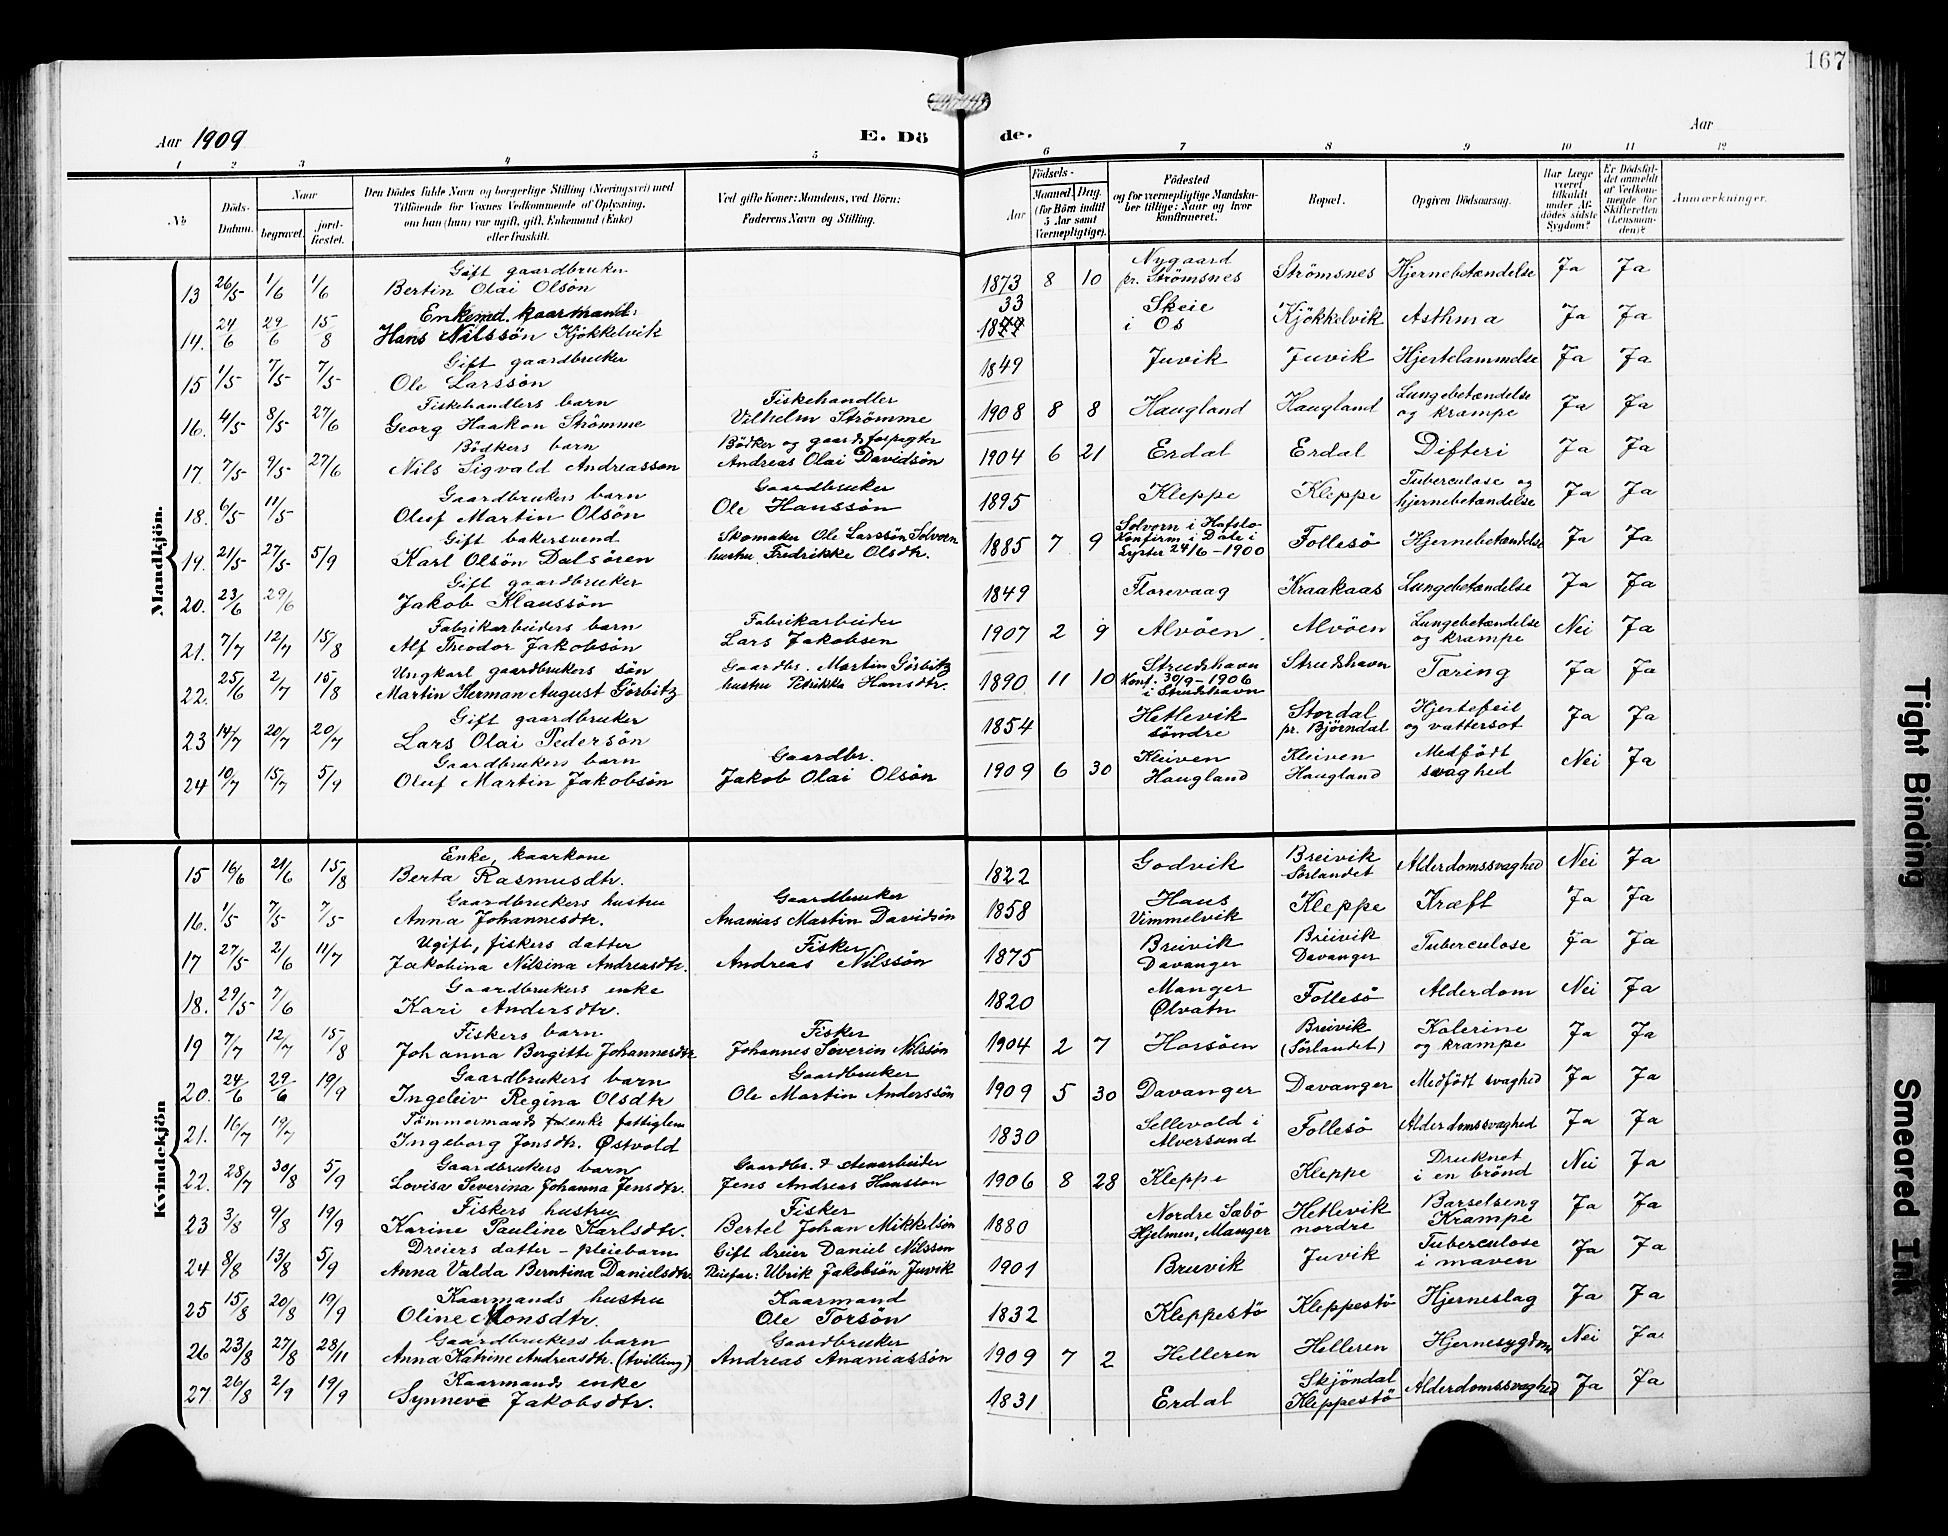 167
Aar 1909
E. Dö
de.
Aar
1 2 3 4 5 6 7 8 9 10 11 12
№
Döds-Datum.
Naar
begravet.
jord-fæstet.
Den Dödes fulde Navn og borgerlige Stilling (Næringsvei) med
Tilföiende for Voxnes Vedkommende af Oplysning,
om han (hun) var ugift, gift, Enkemand (Enke)
eller fraskilt.
Ved gifte Koner: Mandens, ved Börn:
Faderens Navn og Stilling.
Födsels-
Aar
Maaned. Dag.
(for Börn indtil
5 Aar samt
Værnepligtige).
Födested
og for værnepligtige Mandsku-
ber tillige: Naar og hvor
konfirmeret.
Bopæl.
Opgiven Dödsaarsag.
Har Læge
været
tilkaldt
under Af-
dödes sidste
Sygdom?
Er Dödsfal-
det anmeldt
af Vedkom-
mende for
Skifteretten
(Lensman-
den)?
Anmærkninger.
Mandkjön.
Gift gaardbruker
13 26/5 1/6 1/6 Bertin Olai Olsön 1873 8 10 Nygaard pr. Strömsnes Strömsnes Hjernebetændelse Ja Ja
Enkemd. kaarmand.
14. 24/6 29/6 15/8 Hans Nilssön Kjökkelvik 33 1844 Skeie i Os Kjökkelvik Asthma Ja Ja
Gift gaardbruker
15 1/5 7/5 7/5 Ole Larssön 1849 Juvik Juvik Hjertelammelse Ja Ja
Fiskehandlers barn Fiskehandler
16. 4/5 8/5 27/6 Georg Haakon Strömme Vilhelm Strömme 1908 8 8 Haugland Haugland Lungebetændelse og krampe Ja Ja
Bödkers barn Bödker og gaardsforpagter
17. 7/5 9/5 27/6 Nils Sigvald Andreassön Andreas Olai Davidsön 1904 6 21 Erdal Erdal Difteri Ja Ja
Gaardbrukers barn Gaardbruker
18. 6/5 11/5 Oluf Martin Olsön Ole Hanssön 1895 Kleppe Kleppe Tuberculose og hjernebetændelse Ja Ja
Gift bakersvend Skomaker Ole Larssön Solvorn
19. 21/5 27/5 5/9 Karl Olsön Dalsören hustru Fredrikke Olsdtr. 1885 7 9 Solvorn i Hafslo Konfirm i Dale i Lyster 24/6-1900 Follesö Hjernebetændelse Ja Ja
Gift gaardbruker
20. 23/6 29/6 Jakob Klaussön 1849 Florevaag Kraakaas Lungebetændelse Ja Ja
Fabrikarbeiders barn Fabrikarbeider
21. 7/7 12/7 15/8 Alf Theodor Jakobsön Lars Jakobsen 1907 2 9 Alvöen Alvöen Lungebetændelse og krampe Nei Ja
Ungkarl gaardbrukers sön Gaardbr. Martin Görbitz
22. 25/6 2/7 15/8 Martin Herman August Görbitz hustru Petrikke Hansdtr. 1890 11 10 Strudshavn Konf. 30/9-1906 i Strudshavn Strudshavn Tæring Ja Ja
Gift gaardbruker
23 14/7 20/7 20/7 Lars Olai Pedersön 1854 Hetlevik söndre Stordal pr. Björndal Hjertefeil og vattersot Ja Ja
Gaardbrukers barn Gaardbr.
24 10/7 15/7 5/9 Oluf Martin Jakobsön Jakob Olai Olsön 1909 6 30 Kleiven Haugland Kleiven Haugland Medfödt svaghed Nei Ja
Kvindekjön
Enke, kaarkone
15 16/6 21/6 15/8 Berta Rasmusdtr. 1822 Godvik Breivik Sörlandet Alderdomssvaghed Nei Ja
Gaardbrukers hustru Gaardbruker
16. 1/5 7/5 7/5 Anna Johannesdtr. Ananias Martin Davidsön 1858 Haus Vimmelvik Kleppe Kræft Ja Ja
Ugift, fiskers datter Fisker
17 27/5 2/6 11/7 Jakobina Nilsina Andreasdtr. Andreas Nilssön 1875 Breivik Davanger Breivik Davanger Tuberculose Ja Ja
Gaardbrukers enke
18. 29/5 7/6 Kari Andersdtr. 1820 Manger Ølvatn Follesö Alderdom Nei Ja
Fiskers barn Fisker
19 7/7 12/7 15/8 Johanna Bergitte Johannesdtr Johannes Severin Nilssön 1904 2 7 Horsöen Breivik (Sörlandet) Kolerine og krampe Ja Ja
Gaardbrukers barn Gaardbruker
20. 24/6 29/6 19/9 Ingeleiv Regina Olsdtr Ole Martin Anderssön 1909 5 30 Davanger Davanger Medfödt svaghed Ja Ja
Tömmermands enke fattiglem
21. 16/7 19/7 Ingeborg Jonsdtr. Østvold 1830 Sellevold i Alversund Follesö Alderdomssvaghed Ja Ja
Gaardbrukers barn Gaardbr. & arbeider
22. 28/7 30/8 5/9 Lovisa Severina Johanna Jensdtr. Jens Andreas Hansson 1906 8 28 Kleppe Kleppe Druknet i en brönd Nei Ja
Fiskers hustru Fisker
23 3/8 9/8 19/9 Karine Pauline Karlsdtr. Bertel Johan Mikkelsön 1880 Nordre Sæbö Hjelmen, Manger Hetlevik nordre Barselseng Krampe Ja Ja
Dreiers datter - pleiebarn Gift dreier Daniel Nilssen
24 8/8 13/8 5/9 Anna Valda Berntina Danielsdtr. Pleiefar: Ulrik Jakobsön Juvik 1901 Breivik Juvik Tuberculose i maven Ja Ja
Kaarmands hustru Kaarmand
25 15/8 20/8 19/9 Oline Monsdtr. Ole Torsön 1832 Kleppestö Kleppestö Hjerneslag Ja Ja
Gaardbrukers barn Gaardbruker
26 23/8 27/8 23/11 Anna Katrine Andreasdtr. (tvilling) Andreas Ananiassön 1909 7 2 Helleren Helleren Hjernesygdom Nei Ja
Kaarmands enke
27. 26/8 2/9 19/9 Synneve Jakobsdtr. 1831 Erdal Skjöndal Kleppestö Alderdomssvaghed Ja Ja
Tight Binding
Smeared Ink